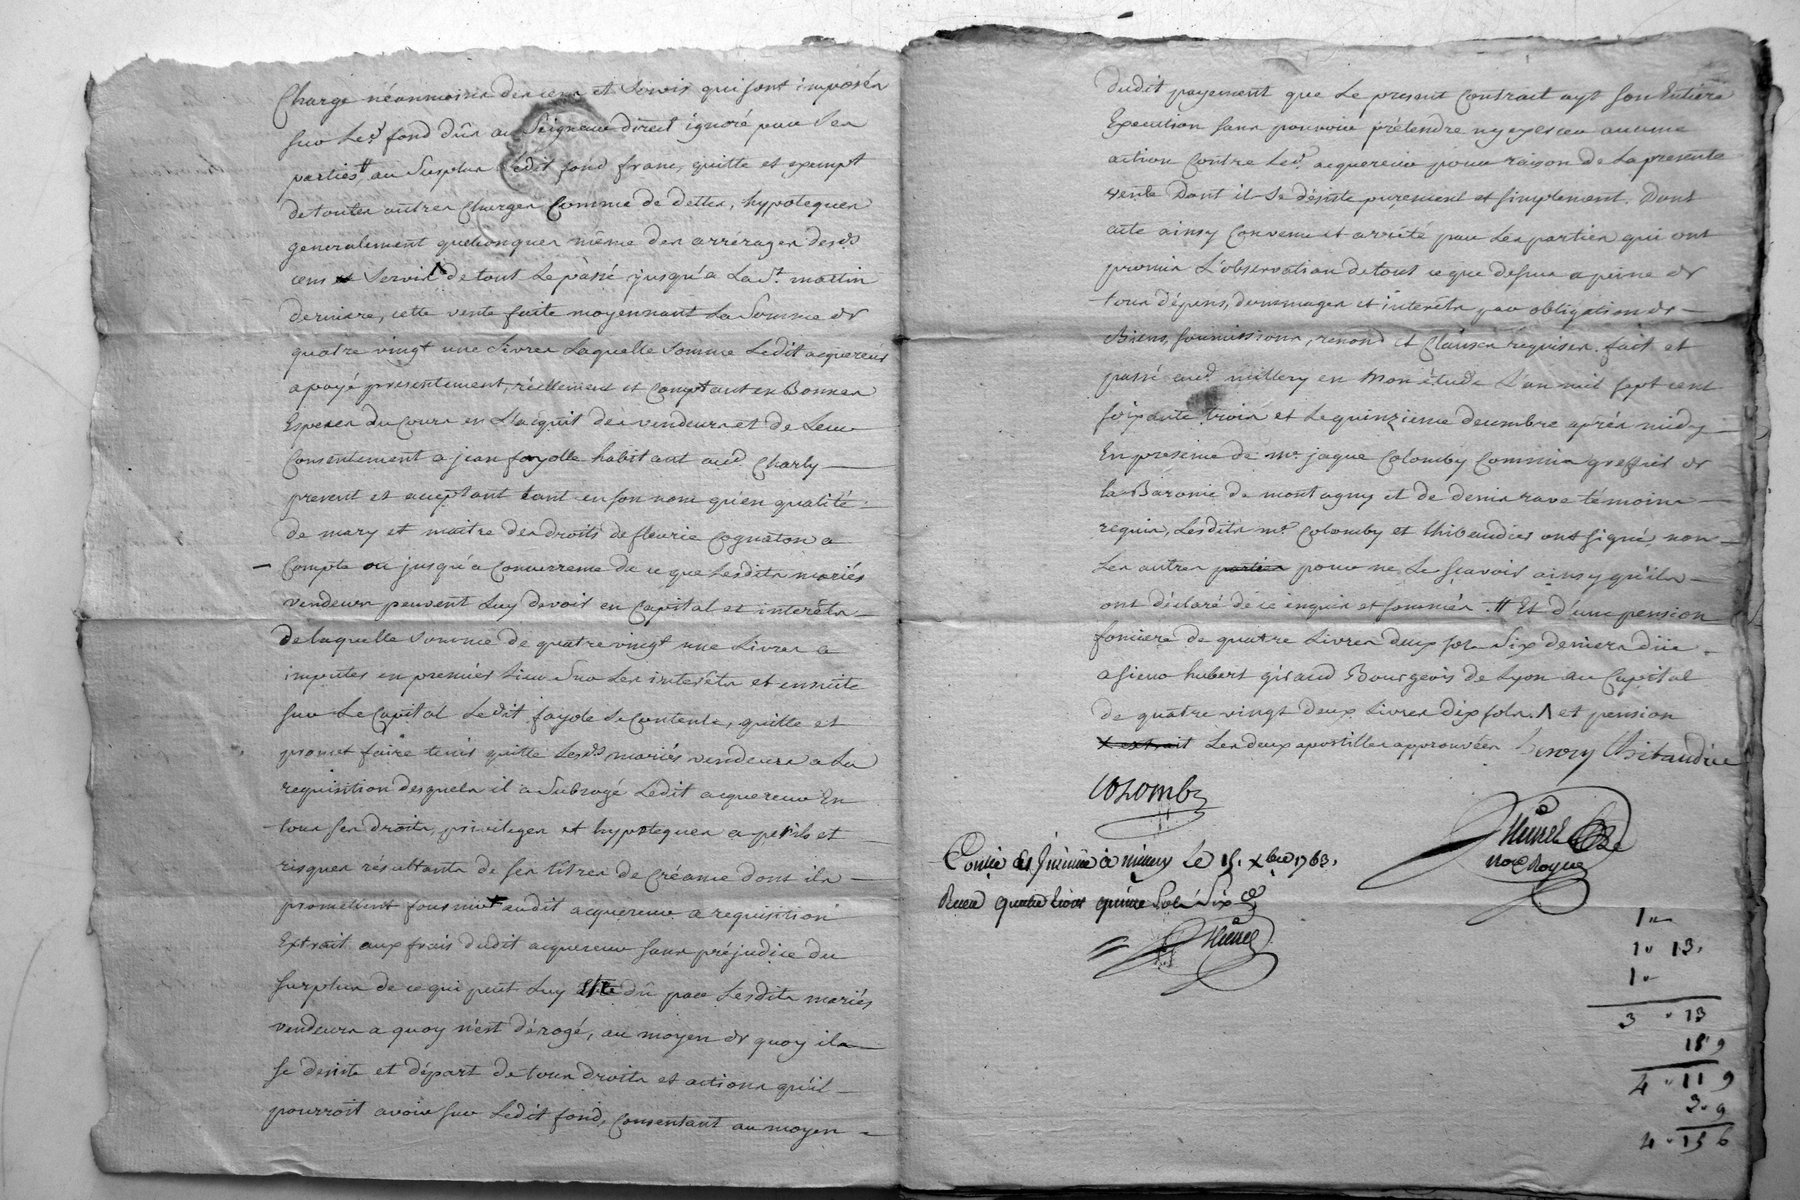 Charge néanmoins des cens et servis qui sont imposés
sur Led. fond dûs au Seigneur direct ignoré par Les
parties # au Surplus Ledit fond franc, quitte et exempt
de toutes autres Charges Comme de dettes, hypoteques
generalement quelconques même des arrérages desds
cens et Servis Λ de tout Le passé jusqu'a La St. martin
derniere, cette vente faite moyennant La Somme de
quatre vingt une Livres Laquelle Somme Ledit acquereur
a payé presentement, réellement et Comptant en Bonnes
Especes du Cours en L'acquit des vendeurs et de Leur
Consentement a jean fayolle habitant aud. Charly
present et acceptant tant en son nom qu'en qualité
de mary et maitre des droits de fleurie Cognaton a
Compte ou jusqu'a Concurrence de ce que Lesdits mariés
vendeurs peuvent Luy devoir en Capital et interêts
de laquelle Somme de quatre vingt une Livres a
imputer en premier Lieu Sur Les interêts et ensuite
sur Le Capital Ledit fayole Se Contente, quitte et
promet faire tenir quitte Lesds mariés vendeurs a La
requisition desquels il a Subrogé Ledit acquereur En
tous ses droits, privileges et hypoteques a perils et
risques résultants de ses titres de Créance dont ils
promettent fournir audit acquereur a requisition
Extrait aux frais dudit acquereur sans préjudice du
surplus de ce qui peut Luy Etre dû par Lesdits mariés
vendeurs a quoy n'est dérogé, au moyen de quoy ils
se desiste et départ de tous droits et actions qu'il
pourroit avoir sur Ledit fond, Consentant au moyen
dudit payement que Le present Contrait ayt son Entiere
Execution sans pouvoir prétendre ny exercer aucune
action Contre Led. acquereur pour raison de La presente
vente Dont il Se désiste purement et simplement. Dont
acte ainsy Convenu et arrêté par Les parties qui ont
promis L'observation de tout ce que dessus a peine de
tous dépens, dommages et intérêts par obligation de
Biens, soumissions, renond. et Clauses requises. fait et
passé aud. millery en Mon étude L'an mil sept cent
soixante trois et Le quinzieme decembre après midy
En presence de mr. jaque Colomby Commis greffier de
la Baronie de montagny et de denis rave témoins
requis, Lesdits mr. Colomby et thibaudier ont signé, non
Les autres parties pour ne Le sçavoir ainsy qu'ils
ont déclaré de ce enquis et sommés. # Et d'une pension
fonciere de quatre Livres deux sols Six deniers düe
a sieur hubert giraud Bourgeois de Lyon au Capital
de quatre vingt deux Livres dix sols. Λ et pension
Les deux apostilles approuvées thibaudier
Colomby
not Royal
Conlé et Insinué à Le 15. xbre 1763.
Receu quatre livres quinze Sols Six d.
1 "
1 " 13.
1 "
3 " 13
18 9
4 " 11 9
3 " 9
4 " 15 6